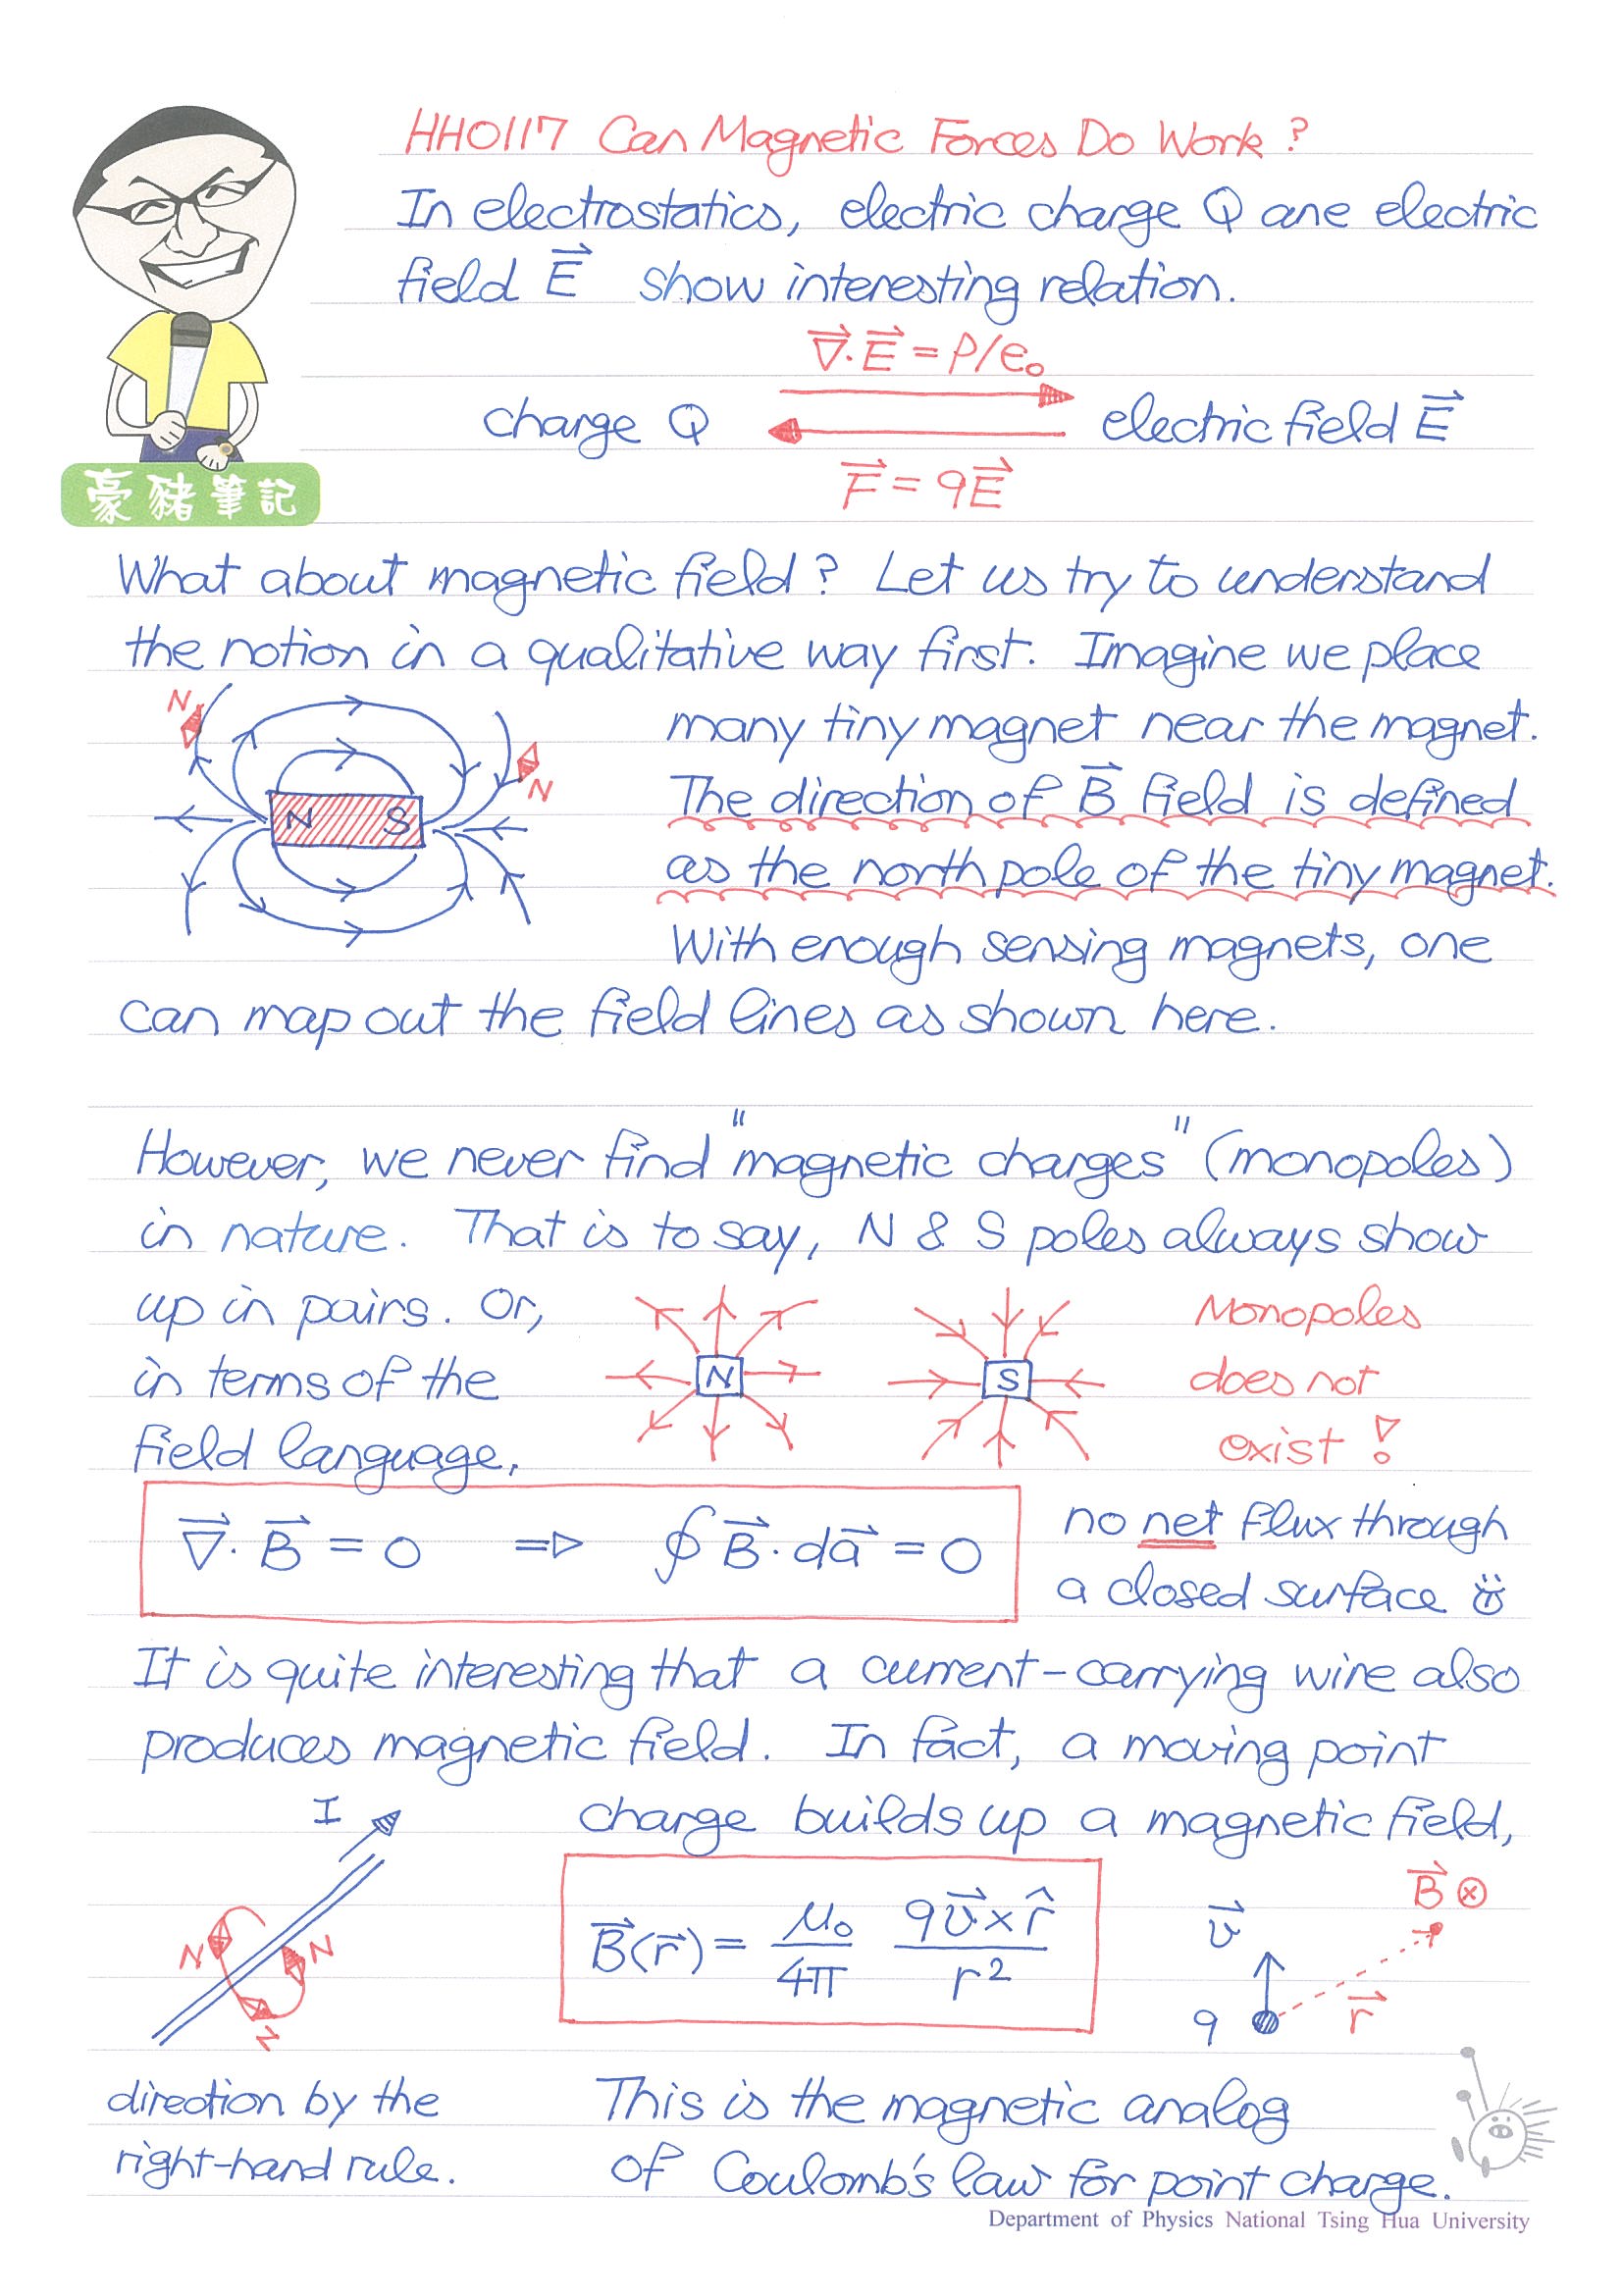 HH0117 Can Magnetic Forces Do Work?
In electrostatics, electric charge Q ane electric
field E⃗ show interesting relation.
∇⃗·E⃗ = ρ/ϵ₀
charge Q electric field E⃗
F⃗ = qE⃗
豪豬筆記
What about magnetic field? Let us try to understand
the notion in a qualitative way first. Imagine we place
many tiny magnet near the magnet.
The direction of B⃗ field is defined
as the north pole of the tiny magnet.
With enough sensing magnets, one
N
N
N S
can map out the field lines as shown here.
However, we never find "magnetic charges" (monopoles)
in nature. That is to say, N & S poles always show
up in pairs. Or,
in terms of the
field language,
N S
Monopoles
does not
exist!
∇⃗·B⃗ = 0 ⇒ ∮B⃗·da⃗ = 0
no net flux through
a closed surface
It is quite interesting that a current-carrying wire also
produces magnetic field. In fact, a moving point
charge builds up a magnetic field,
I
N
N
N
B⃗(r⃗) = μ₀/4π qv⃗×r̂/r²
B⃗ ⊗
v⃗
q
r⃗
direction by the
right-hand rule.
This is the magnetic analog
of Coulomb's law for point charge.
Department of Physics National Tsing Hua University